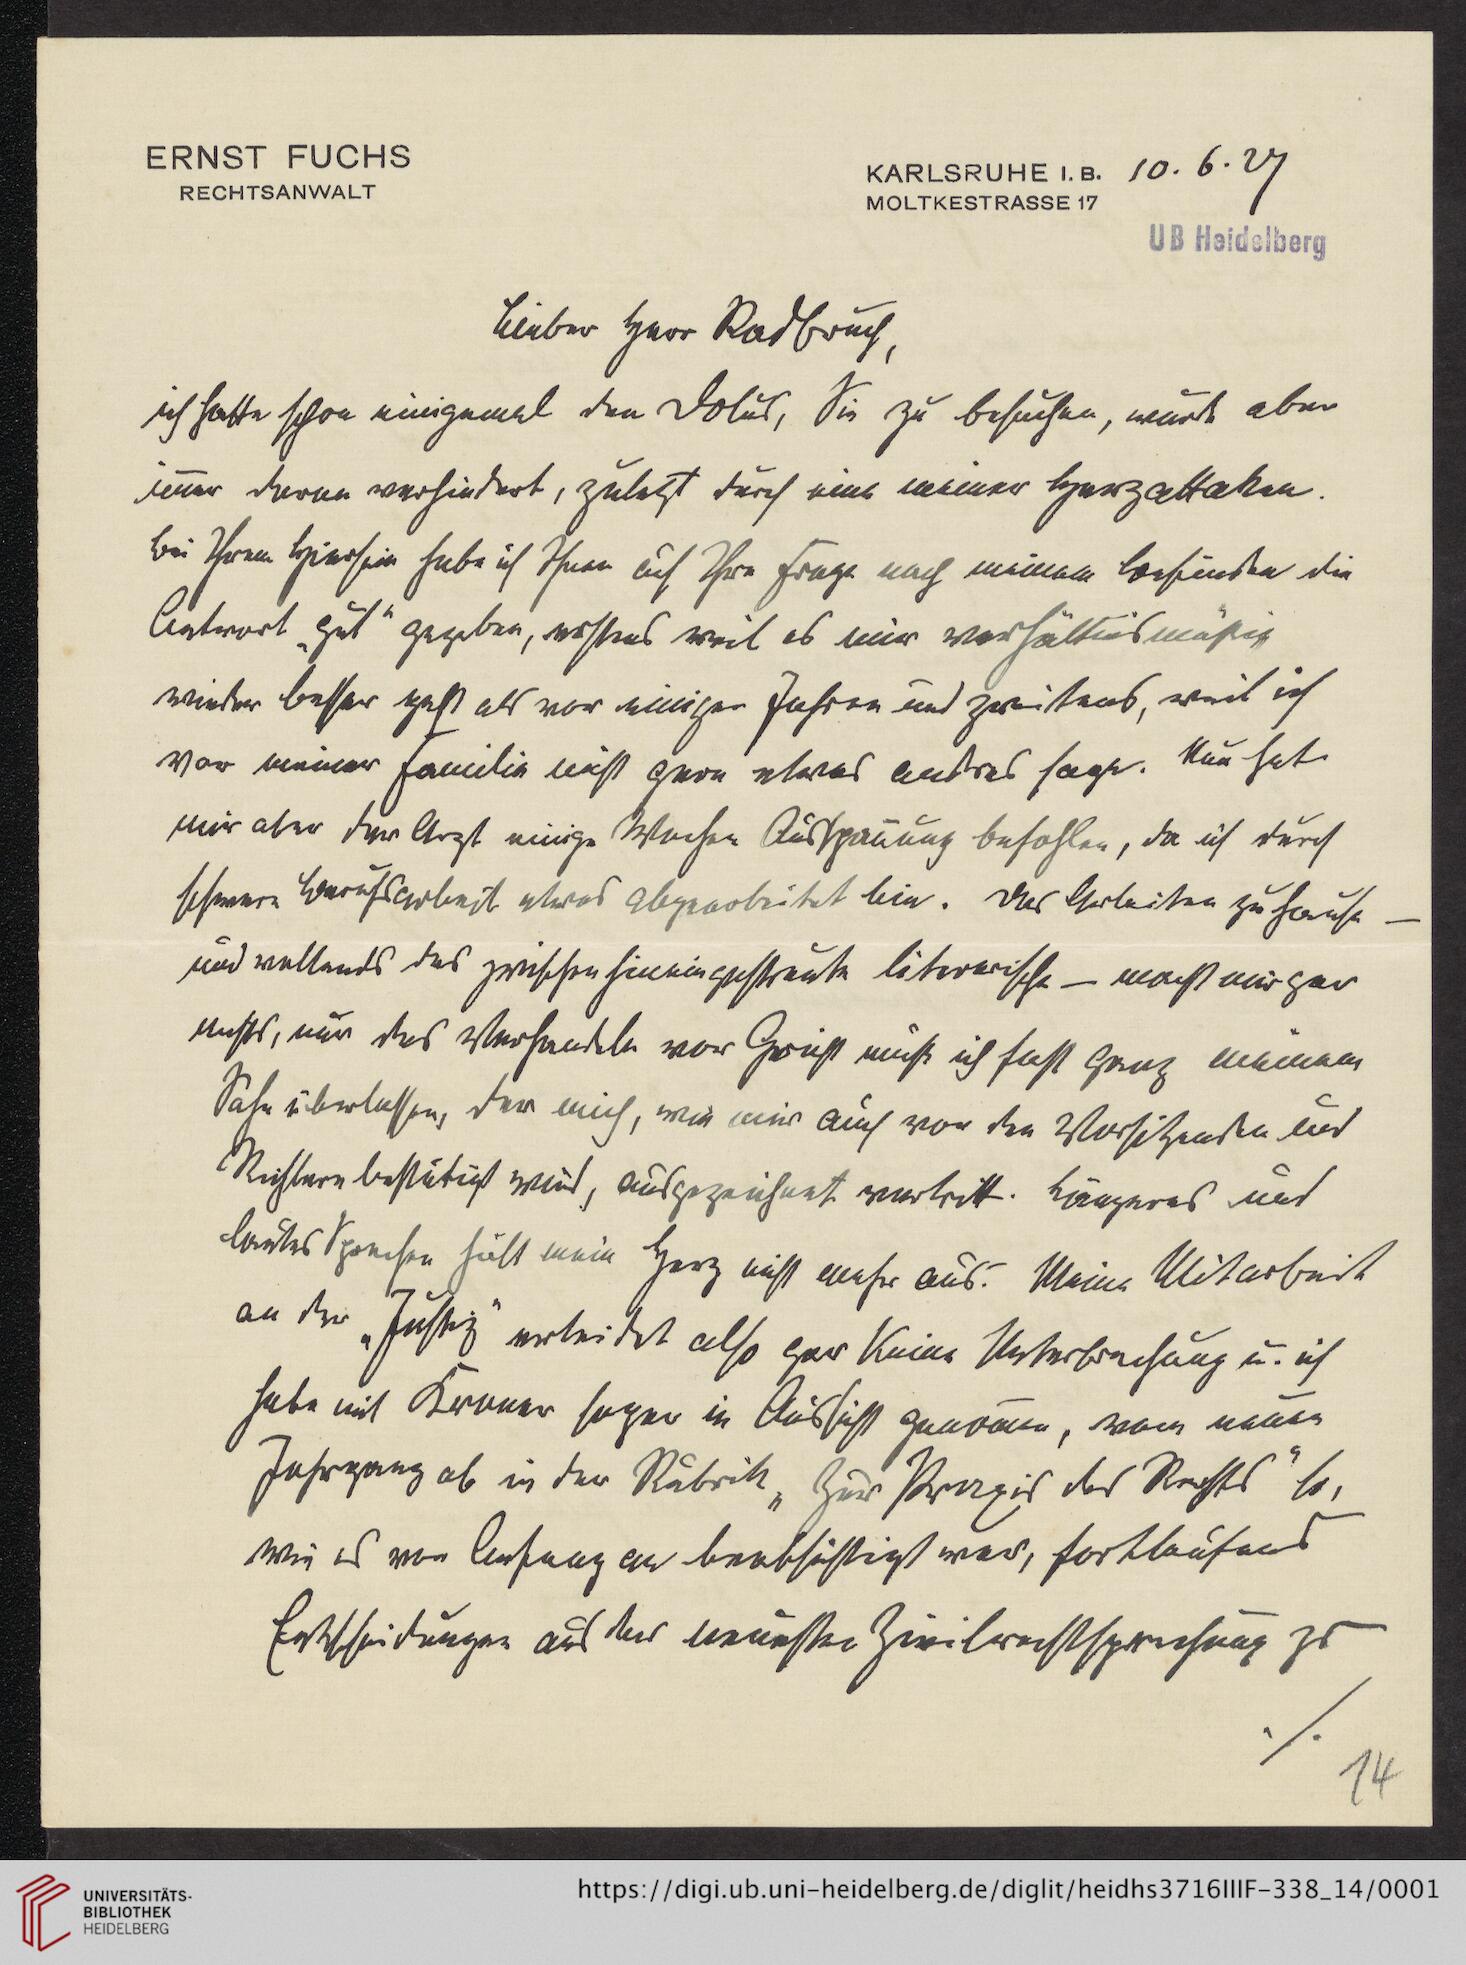 ERNST FUCHS
RECHTSANWALT
KARLSRUHE I. B. 10. 6. 27
MOLTKESTRASSE 17
UB Heidelberg
Lieber Herr Radbruch,
ich hatte schon einigemal den Dolus, Sie zu besuchen, wurde aber
im̅er daran verhindert, zuletzt durch eine meiner Herzattaken.
Bei Ihrem Hiersein habe ich Ihnen auf Ihre Frage nach meinem Befinden die
Antwort „gut“ gegeben, erstens weil es mir verhältnismäßig
wieder besser geht als vor einigen Jahren und zweitens, weil ich
vor meiner Familie nicht gern etwas andres sage. Nun hat
mir aber der Arzt einige Wochen Ausspan̅ung befohlen, da ich durch
schwere Berufsarbeit etwas abgearbeitet bin. Das Arbeiten zuhause —
und vollends das zwischenhineingestreute literarische — macht mir gar
nichts, nur das Verhandeln vor Gericht muß ich fast ganz meinem
Sohn überlassen, der mich, wie mir auch von den Vorsitzenden und
Richtern bestätigt wird, ausgezeichnet vertritt. Längeres und
lautes Sprechen hält mein Herz nicht mehr aus. Meine Mitarbeit
an der „Justiz“ erleidet also gar keine Unterbrechung u. ich
habe mit Kroner sogar in Aussicht genom̅en, vom neuen
Jahrgang ab in der Rubrik „Zur Praxis des Rechts“ so,
wie es von Anfang an beabsichtigt war, fortlaufend
Entscheidungen aus der neuesten Zivilrechtsprechung zu
./.
14
UNIVERSITÄTS-
BIBLIOTHEK
HEIDELBERG
https://digi.ub.uni-heidelberg.de/diglit/heidhs3716IIIF-338_14/0001